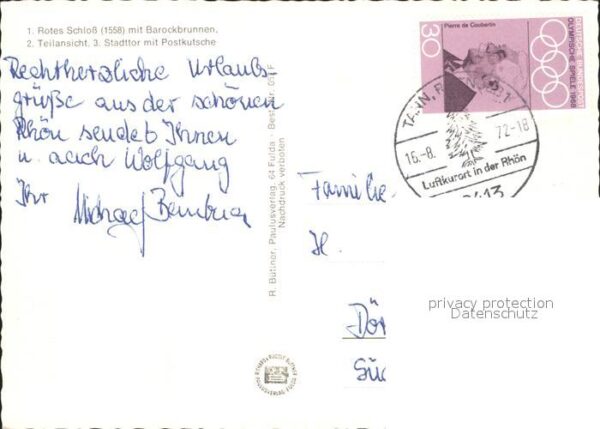 1. Rotes Schloß (1558) mit Barockbrunnen,
2. Teilansicht, 3. Stadttor mit Postkutsche
Rechtherzliche Urlaubs-
grüße aus der schönen
Rhön sendet Ihnen
u. auch Wolfgang
Ihr Michael
R. Büttner, Paulusverlag, 64 Fulda - Best
Nachdruck verboten
Pierre de Coubertin
30
DEUTSCHE BUNDESPOST
OLYMPISCHE SPIELE 1968
TANN,
16.-8. 72-18
Luftkurort in der Rhön
6413
Familie
H.
Dör
Sü
privacy protection
Datenschutz